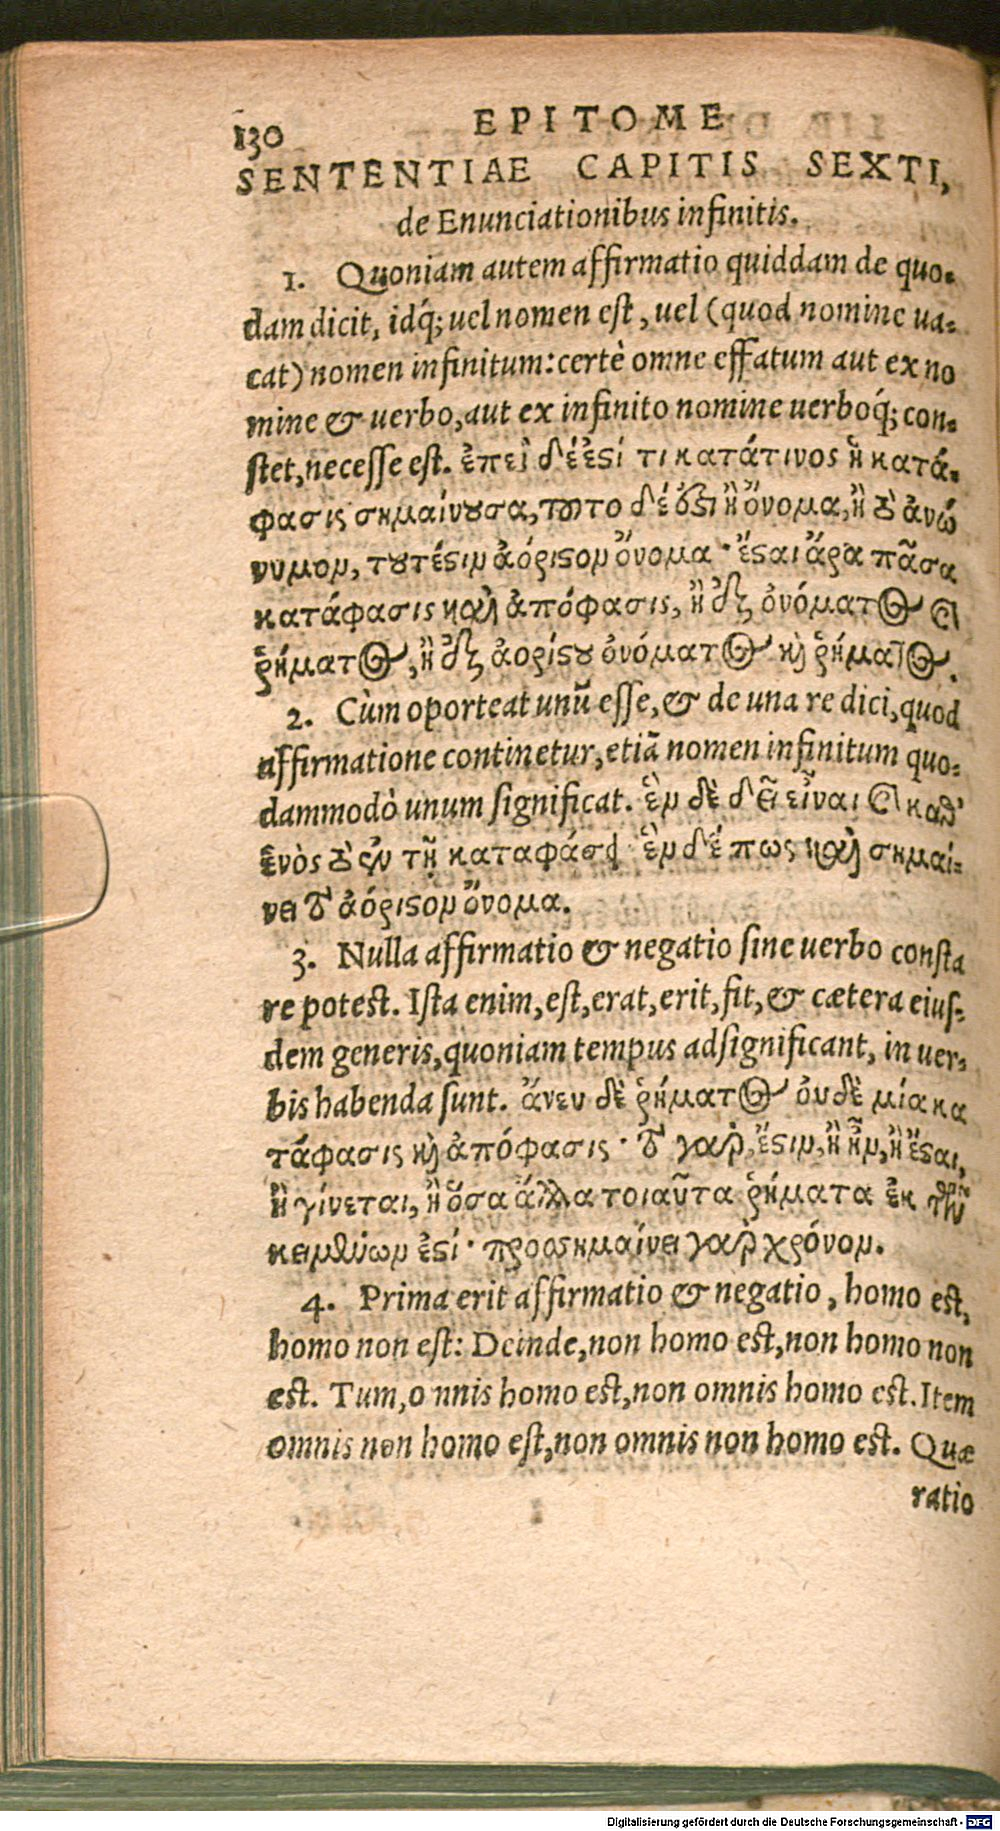 130
EPITOME
SENTENTIAE CAPITIS SEXTI,
de Enunciationibus infinitis.
1. Quoniam autem affirmatio quiddam de quo-
dam dicit, idq́; uel nomen est, uel (quod nomine ua-
cat) nomen infinitum: certè omne effatum aut ex no
mine & uerbo, aut ex infinito nomine uerboq́; con-
stet, necesse est. ἐπεὶ δέ ἐϛί τι κατά τινος ἡ κατά-
φασις σημαίνουσα, τοῦτο δέ ἐϛι ἢ ὄνομα, ἢ τὸ ἀνώ
νυμον, τουτέϛιν ἀόριϛον ὄνομα· ἔϛαι ἄρα πᾶσα
κατάφασις καὶ ἀπόφασις, ἢ ἐξ ὀνόματος καὶ
ῥήματος, ἢ ἐξ ἀορίϛου ὀνόματος καὶ ῥήματος.
2. Cùm oporteat unũ esse, & de una re dici, quod
affirmatione continetur, etiã nomen infinitum quo-
dammodò unum significat. ἓν δὲ δεῖ εἶναι καὶ καθ'
ἑνὸς τὸ ἐν τῇ καταφάσει· ἓν δέ πως καὶ σημαί-
νει τὸ ἀόριϛον ὄνομα.
3. Nulla affirmatio & negatio sine uerbo consta
re potest. Ista enim, est, erat, erit, fit, & cætera eius-
dem generis, quoniam tempus adsignificant, in uer-
bis habenda sunt. ἄνευ δὲ ῥήματος οὐδὲ μία κα
τάφασις καὶ ἀπόφασις· τὸ γὰρ, ἔϛιν, ἢ ἦν, ἢ ἔϛαι,
ἢ γίνεται, ἢ ὅσα ἄλλα τοιαῦτα ῥήματα ἐκ τῶν
κειμένων ἐϛί· προσσημαίνει γὰρ χρόνον.
4. Prima erit affirmatio & negatio, homo est,
homo non est: Deinde, non homo est, non homo non
est. Tum, o nnis homo est, non omnis homo est. Item
omnis non homo est, non omnis non homo est. Quæ
ratio
Digitalisierung gefördert durch die Deutsche Forschungsgemeinschaft - DFG